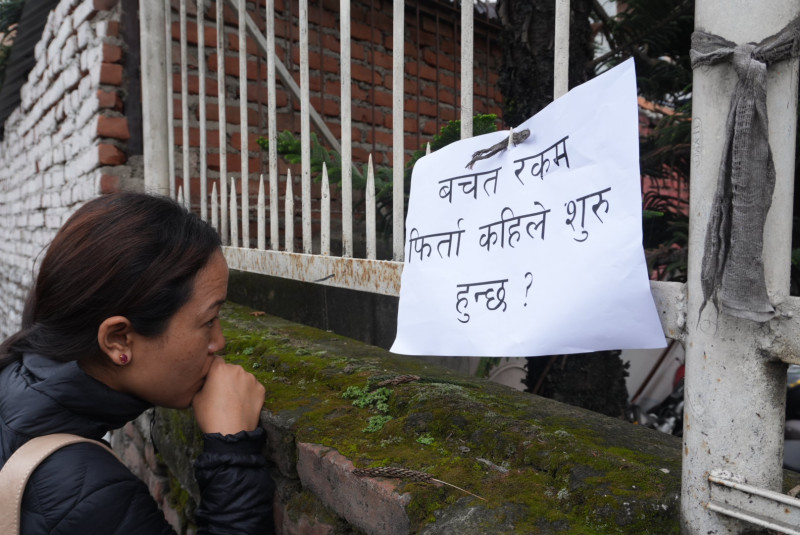 बचत रकम
फिर्ता कहिले शुरु
हुन्छ ?